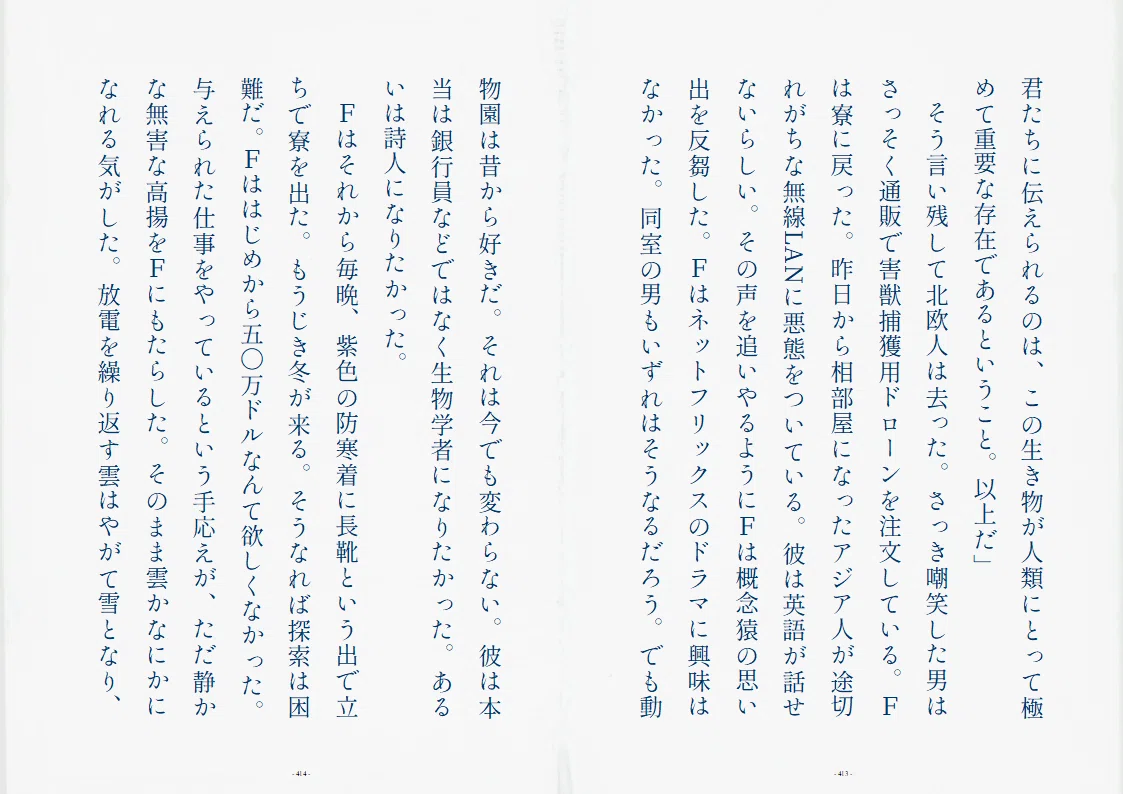 君たちに伝えられるのは、この生き物が人類にとって極
めて重要な存在であるということ。以上だ」
　そう言い残して北欧人は去った。さっき嘲笑した男は
さっそく通販で害獣捕獲用ドローンを注文している。F
は寮に戻った。昨日から相部屋になったアジア人が途切
れがちな無線LANに悪態をついている。彼は英語が話せ
ないらしい。その声を追いやるようにFは概念猿の思い
出を反芻した。Fはネットフリックスのドラマに興味は
なかった。同室の男もいずれはそうなるだろう。でも動
- 413 -
物園は昔から好きだ。それは今でも変わらない。彼は本
当は銀行員などではなく生物学者になりたかった。ある
いは詩人になりたかった。
　Fはそれから毎晩、紫色の防寒着に長靴という出で立
ちで寮を出た。もうじき冬が来る。そうなれば探索は困
難だ。Fははじめから五〇万ドルなんて欲しくなかった。
与えられた仕事をやっているという手応えが、ただ静か
な無害な高揚をFにもたらした。そのまま雲かなにかに
なれる気がした。放電を繰り返す雲はやがて雪となり、
- 414 -